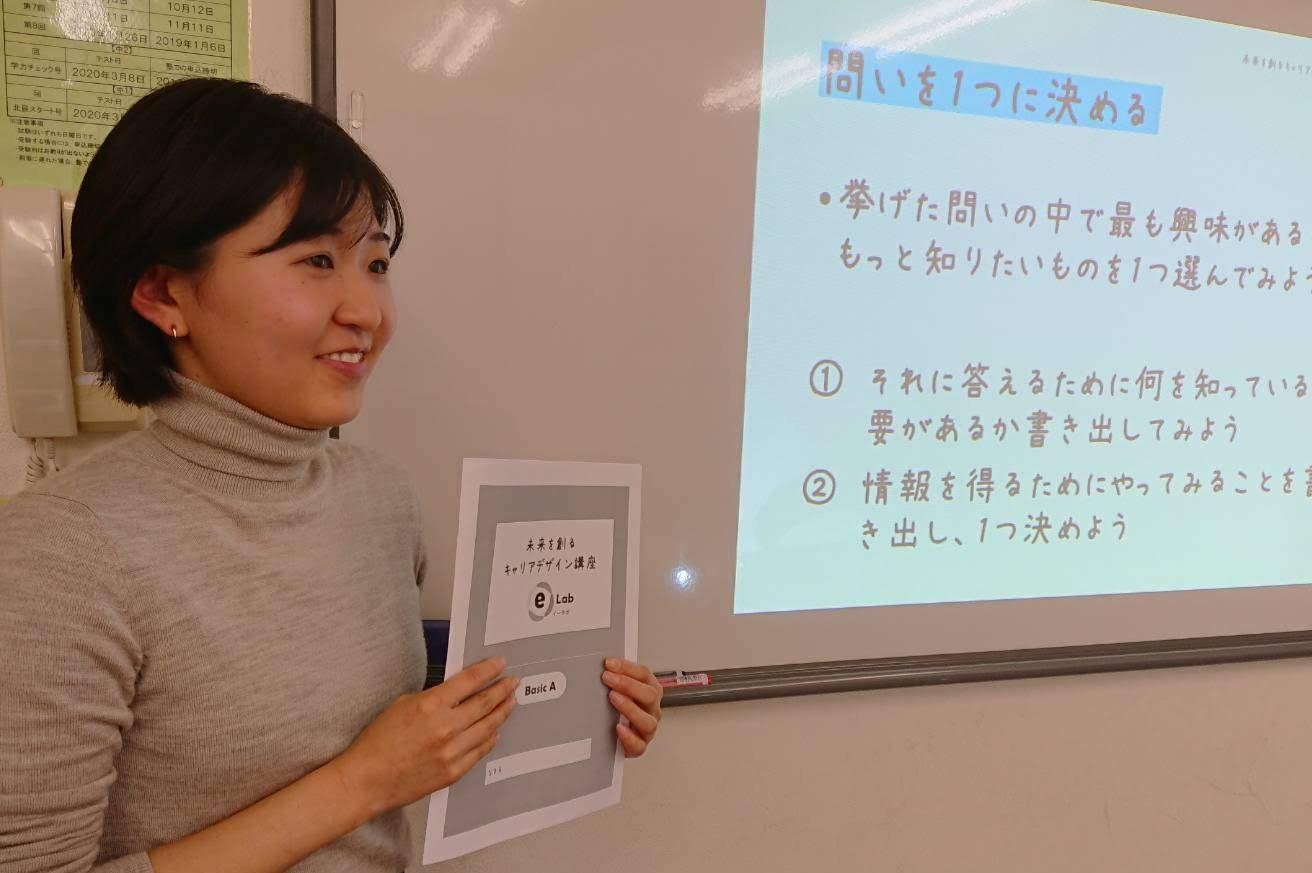 第7回 10月12日
第8回 11月11日
26日 2019年1月6日
【中2】
回 テスト日 塾での申込締切
学力チェック号 2020年3月8日
【中1】
回 テスト日
北辰スタート号 2020年3
※注意事項
試験はいずれも日曜日です。
問いを1つに決める
•挙げた問いの中で最も興味がある
もっと知りたいものを1つ選んでみよう
① それに答えるために何を知っている
要があるか書き出してみよう
② 情報を得るためにやってみることを書
き出し、1つ決めよう
未来を創る
キャリアデザイン講座
e Lab
イーラボ
Basic A
なまえ